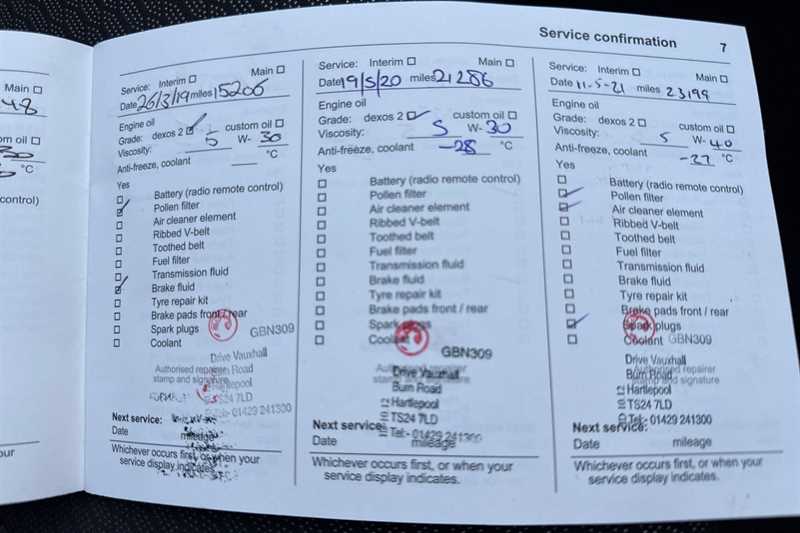 Service confirmation 7
Main
48
om oil
30
°C
control)
our
Service: Interim Main
Date 26/3/19 miles 15206
Engine oil
Grade: dexos 2 custom oil
Viscosity: 5 W- 30
Anti-freeze, coolant °C
Yes
Battery (radio remote control)
Pollen filter
Air cleaner element
Ribbed V-belt
Toothed belt
Fuel filter
Transmission fluid
Brake fluid
Tyre repair kit
Brake pads front / rear
Spark plugs
Coolant
GBN309
Drive Vauxhall
Authorised repairer
Burn Road
stamp and signature
Hartlepool
TS24 7LD
Tel: 01429 241300
Next service:
Date mileage
Whichever occurs first, or when your
service display indicates.
Service: Interim Main
Date 19/5/20 miles 21286
Engine oil
Grade: dexos 2 custom oil
Viscosity: 5 W- 30
Anti-freeze, coolant -28 °C
Yes
Battery (radio remote control)
Pollen filter
Air cleaner element
Ribbed V-belt
Toothed belt
Fuel filter
Transmission fluid
Brake fluid
Tyre repair kit
Brake pads front / rear
Spark plugs
Coolant
GBN309
Drive Vauxhall
Burn Road
Hartlepool
TS24 7LD
Next service:
Tel:- 01429 241300
Date mileage
Whichever occurs first, or when your
service display indicates.
Service: Interim Main
Date 11-5-21 miles 23199
Engine oil
Grade: dexos 2 custom oil
Viscosity: 5 W- 40
Anti-freeze, coolant -27 °C
Yes
Battery (radio remote control)
Pollen filter
Air cleaner element
Ribbed V-belt
Toothed belt
Fuel filter
Transmission fluid
Brake fluid
Tyre repair kit
Brake pads front / rear
Spark plugs
Coolant GBN309
Drive Vauxhall
Authorised repairer
Burn Road
stamp and signature
Hartlepool
TS24 7LD
Tel:- 01429 241300
Next service:
Date mileage
Whichever occurs first, or when your
service display indicates.